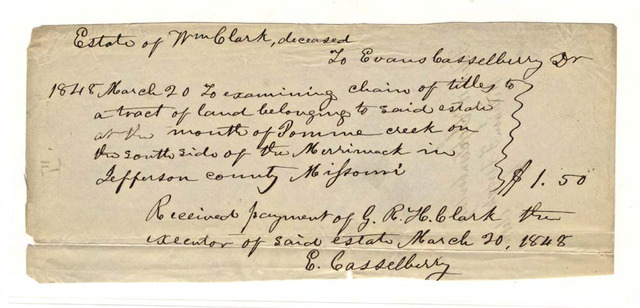 Estate of Wm Clark, deceased
To Evans Casselberry Dr
1848 March 20 To examining chain of titles to
a tract of land belonging to said estate
at the mouth of Pomme creek on
the south side of the Merrimack in
Jefferson county Missouri $1.50
Received payment of G. R. H. Clark the
executor of said estate March 20, 1848
E. Casselberry